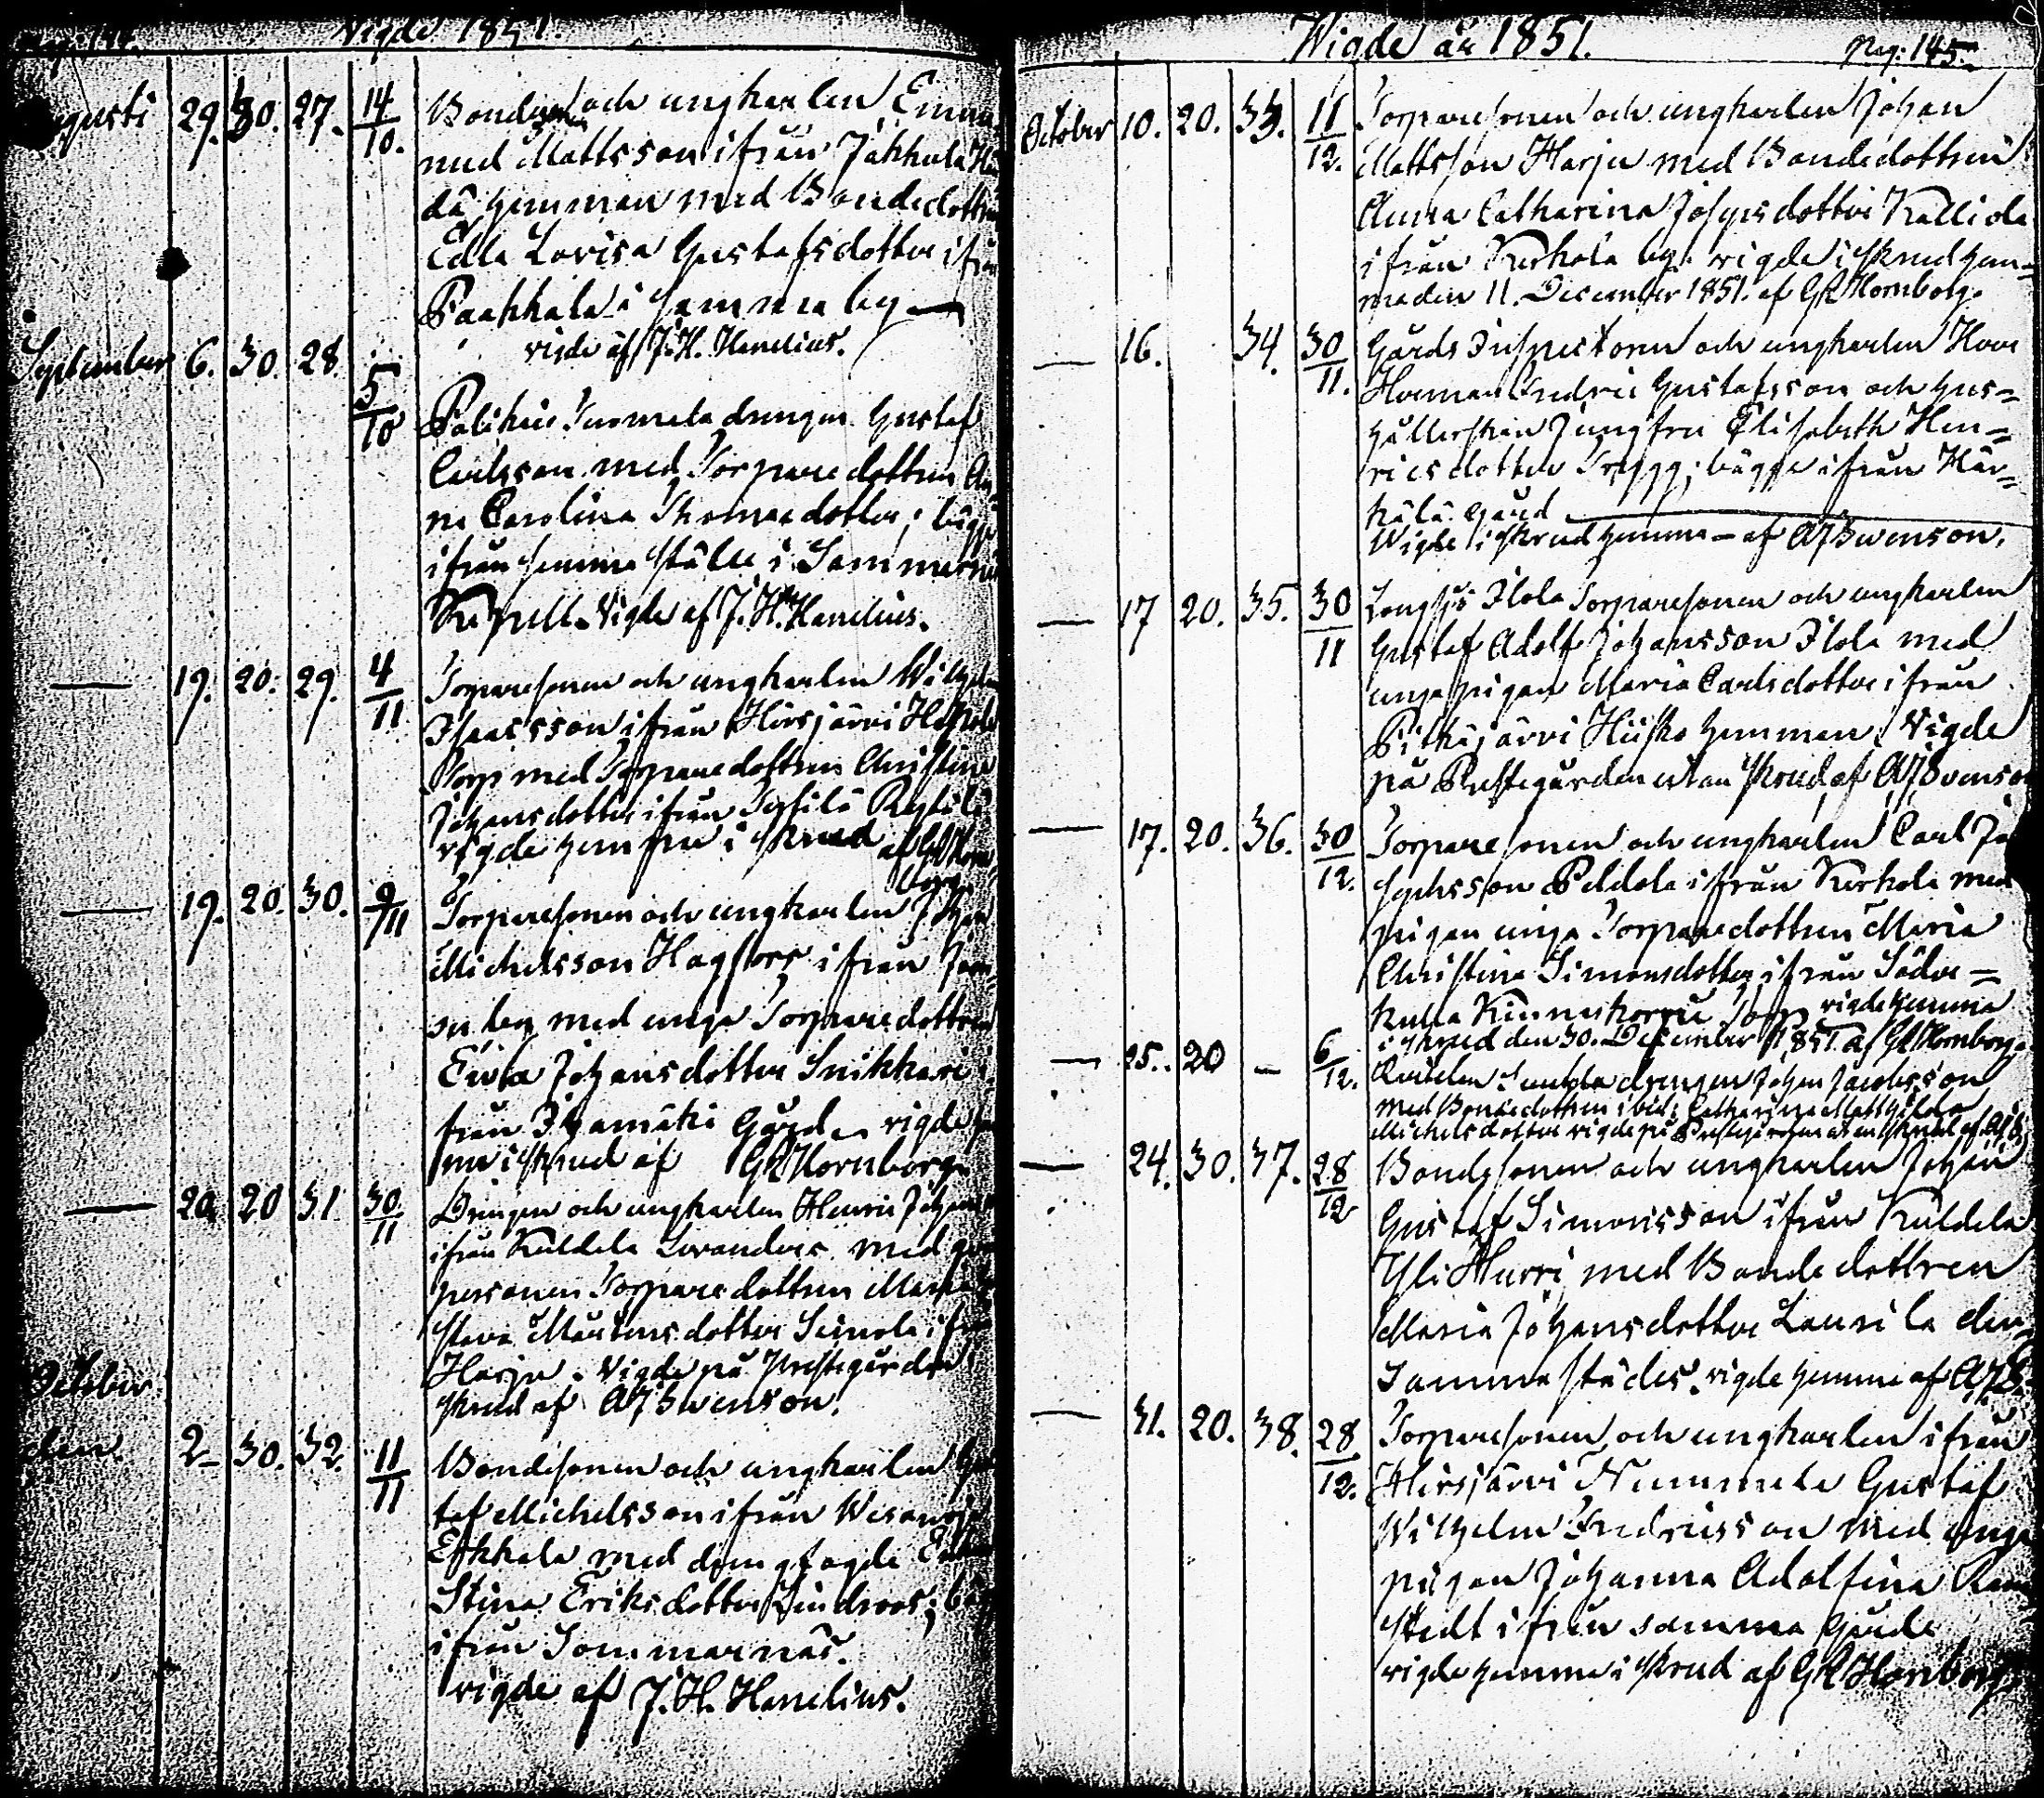 Vigde 1851.
gusti 29. 30. 27. 14/10. Bondesonen och ungkarlen Emma
nuel Mattsson ifrån Jakkula
då hemman med Bondedottren
Edla Lovisa Gustafsdotter ifrån
Paakkala i samma by
vigde af J. H. Hanelius.
September 6. 30. 28. 5/10 drengen Gustaf
Carlsson med Torparedottren An
na Carolina Thomasdotter; bägge
ifrån samma ställe i Sommarnäs
Kapell. Vigde af J. H. Hanelius.
— 19. 20. 29. 4/11 Torparesonen och ungkarlen Wilhelm
Isaacsson ifrån Hirsjärvi
Torp med Torparedottren Christina
Johansdotter ifrån
vigde hemma i skrud af GR Horn
borg.
— 19. 20. 30. 9/11 Torparesonen och ungkarlen Johan
Michelsson Hagfors ifrån
su by med unga Torparedottren
Eva Johansdotter Snikkari i
från Ihamäki Gård vigde hem
ma i skrud af GR Hornborg.
— 20 20 31 30/11 Drengen och ungkarlen Henric Johans
ifrån Kuldela med
personen Torparedottren Maria
stava Mårtensdotter Seinola ifrån
Harju. Vigde på Prestegården
skrud af AJ Swenson.
October
den 2 30. 32. 11/11 Bondesonen och ungkarlen Gus
taf Michelsson ifrån
Erkkala med
Stina Eriksdotter Lindroos; bägge
ifrån Sommarnäs.
vigde af J. H. Hanelius.
Wigde år 1851. Pag. 145.
October 10. 20. 33. 11/12. Torparesonen och ungkarlen Johan
Mattsson Harju med Bondedottren
Anna Catharina Josephsdotter Kalliola
ifrån Kerkola by. vigde i skrud hem-
ma den 11. December 1851. af GR Hornborg.
— 16. 34. 30/11. Gårds Inspectoren och ungkarlen Herr
Herman Fredric Gustafsson och hus-
hållerskan Jungfru Elisabeth Hen-
ricsdotter Trygg; bägge ifrån Här-
kälä Gård
Vigde i skrud hemma af AJ Swenson.
— 17 20. 35. 30/11 Ilola Torparesonen och ungkarlen
Gustaf Adolf Johansson Ilola med
unga pigan Maria Carlsdotter ifrån
Pitkäjärvi Hiisko hemman. Vigde
på Prestegården utan skrud af AJ Swenson
— 17. 20. 36. 30/12. Torparesonen och ungkarlen Carl Jo
sephsson Peldola ifrån Kerkola med
pigan unga Torparedottren Maria
Christina Simonsdotter ifrån Söder-
kulla Kinnaskorpi Torp vigde hemma
i skrud den 30. December 1851. af GR Hornborg.
— 25. 20 — 6/12. drengen Johan Jacobsson
med Bondedottren ibid: Catharina Mathilda
Michelsdotter vigde på Prestegården utan skrud af AJ S.
— 24. 30. 37. 28/12 Bondesonen och ungkarlen Johan
Gustaf Simonsson ifrån Kuldela
Yli Hurri med Bondedottren
Maria Johansdotter Laurila der-
sammastädes. vigde hemma af AJ S.
— 31. 20. 38. 28/12. Torparesonen och ungkarlen ifrån
Hirsjärvi Nummela Gustaf
Wilhelm Fredricsson med unga
pigan Johanna Adolfina
stedt ifrån samma Gård
vigde hemma i skrud af GR Hornborg.